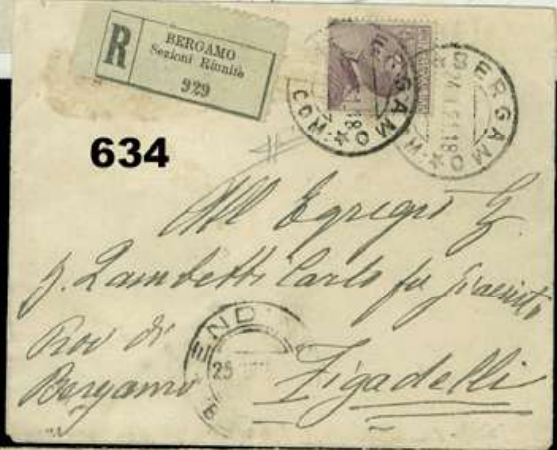 R
BERGAMO
Sezioni Riunite
929
BERGAMO
COM.
BERGAMO
24.1. 18
634
All Egregio
Lambetti Carlo fu Giacinto
Prov di
Bergamo
END
25
Figadelli